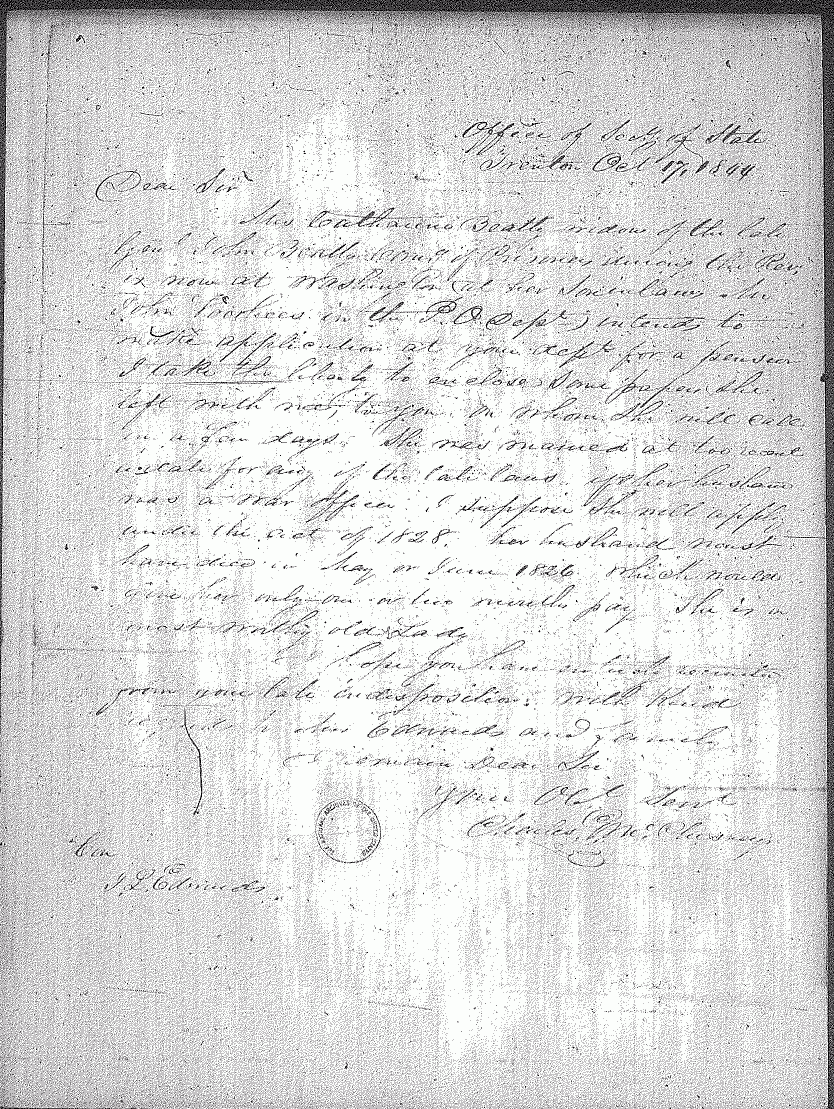 Office of Secy of State
Trenton Oct 17, 1844
Dear Sir
Mrs Catharine Beatty widow of the late
Genl John Beatty Comy of Prisoners during the Rev
is now at Washington (at her Son in laws Mr
John Voorhees in the P.O. Dept) intends to
make application at your dept for a pension
I take the liberty to enclose some papers she
left with me, to you on whom she will call
in a few days. She was married at too recent
a date for any of the late laws. If her husband
was a war officer I suppose she will apply
under the act of 1828. her husband must
have died in May or June 1826 which would
give her only one or two months pay She is a
most worthy old Lady
I hope you have entirely recovered
from your late indisposition. With Kind
regards to Mrs Edwards and family
I remain Dear Sir
Your Obt Servt
Charles McChesney
THE NATIONAL ARCHIVES OF THE UNITED STATES
J. L. Edwards